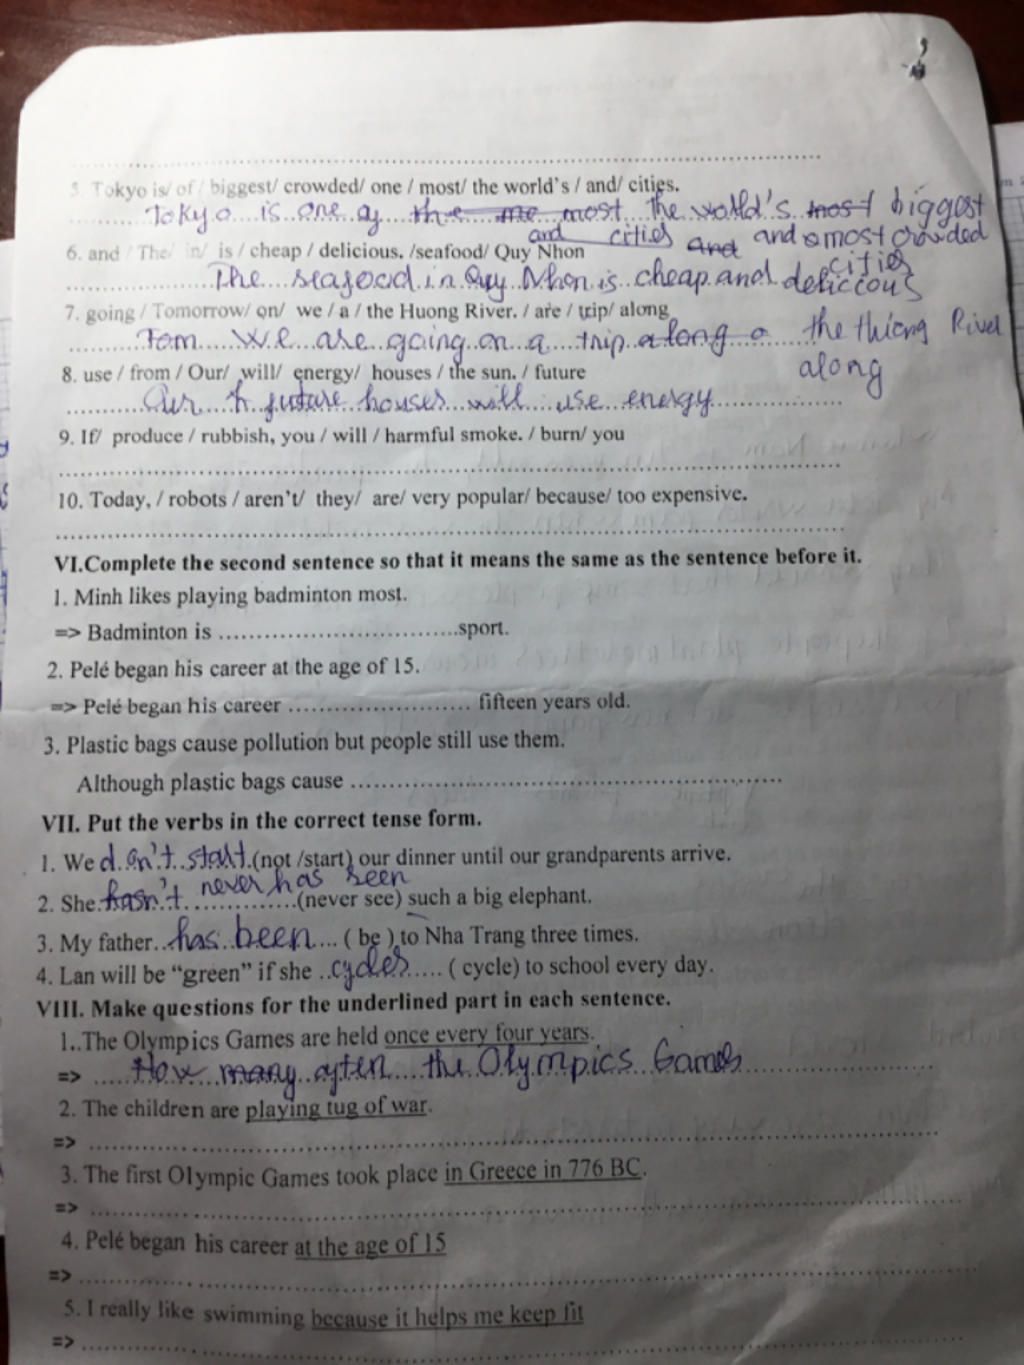 5. Tokyo is/ of / biggest/ crowded/ one / most/ the world's / and/ cities.
Tokyo is one of the me most the world's most biggest
and cities and and most crowded
cities
6. and / The/ in/ is / cheap / delicious. /seafood/ Quy Nhon
The seafood in Quy Nhon is cheap and delicious
7. going / Tomorrow/ on/ we / a / the Huong River. / are / trip/ along
Tom We are going on a trip along the Huong River
along
8. use / from / Our/ will/ energy/ houses / the sun. / future
Our future houses will use energy
9. If/ produce / rubbish, you / will / harmful smoke. / burn/ you
10. Today, / robots / aren't/ they/ are/ very popular/ because/ too expensive.
VI.Complete the second sentence so that it means the same as the sentence before it.
1. Minh likes playing badminton most.
=> Badminton is ..............................sport.
2. Pelé began his career at the age of 15.
=> Pelé began his career ........................ fifteen years old.
3. Plastic bags cause pollution but people still use them.
Although plastic bags cause ........................................................
VII. Put the verbs in the correct tense form.
1. We don't start (not /start) our dinner until our grandparents arrive.
never has seen
2. She hasn't ..............(never see) such a big elephant.
3. My father..has been.... ( be ) to Nha Trang three times.
4. Lan will be "green" if she ..cycles..... ( cycle) to school every day.
VIII. Make questions for the underlined part in each sentence.
1..The Olympics Games are held once every four years.
=> How many often the Olympics Games
2. The children are playing tug of war.
=>
3. The first Olympic Games took place in Greece in 776 BC.
=>
4. Pelé began his career at the age of 15
=>
5. I really like swimming because it helps me keep fit
=>